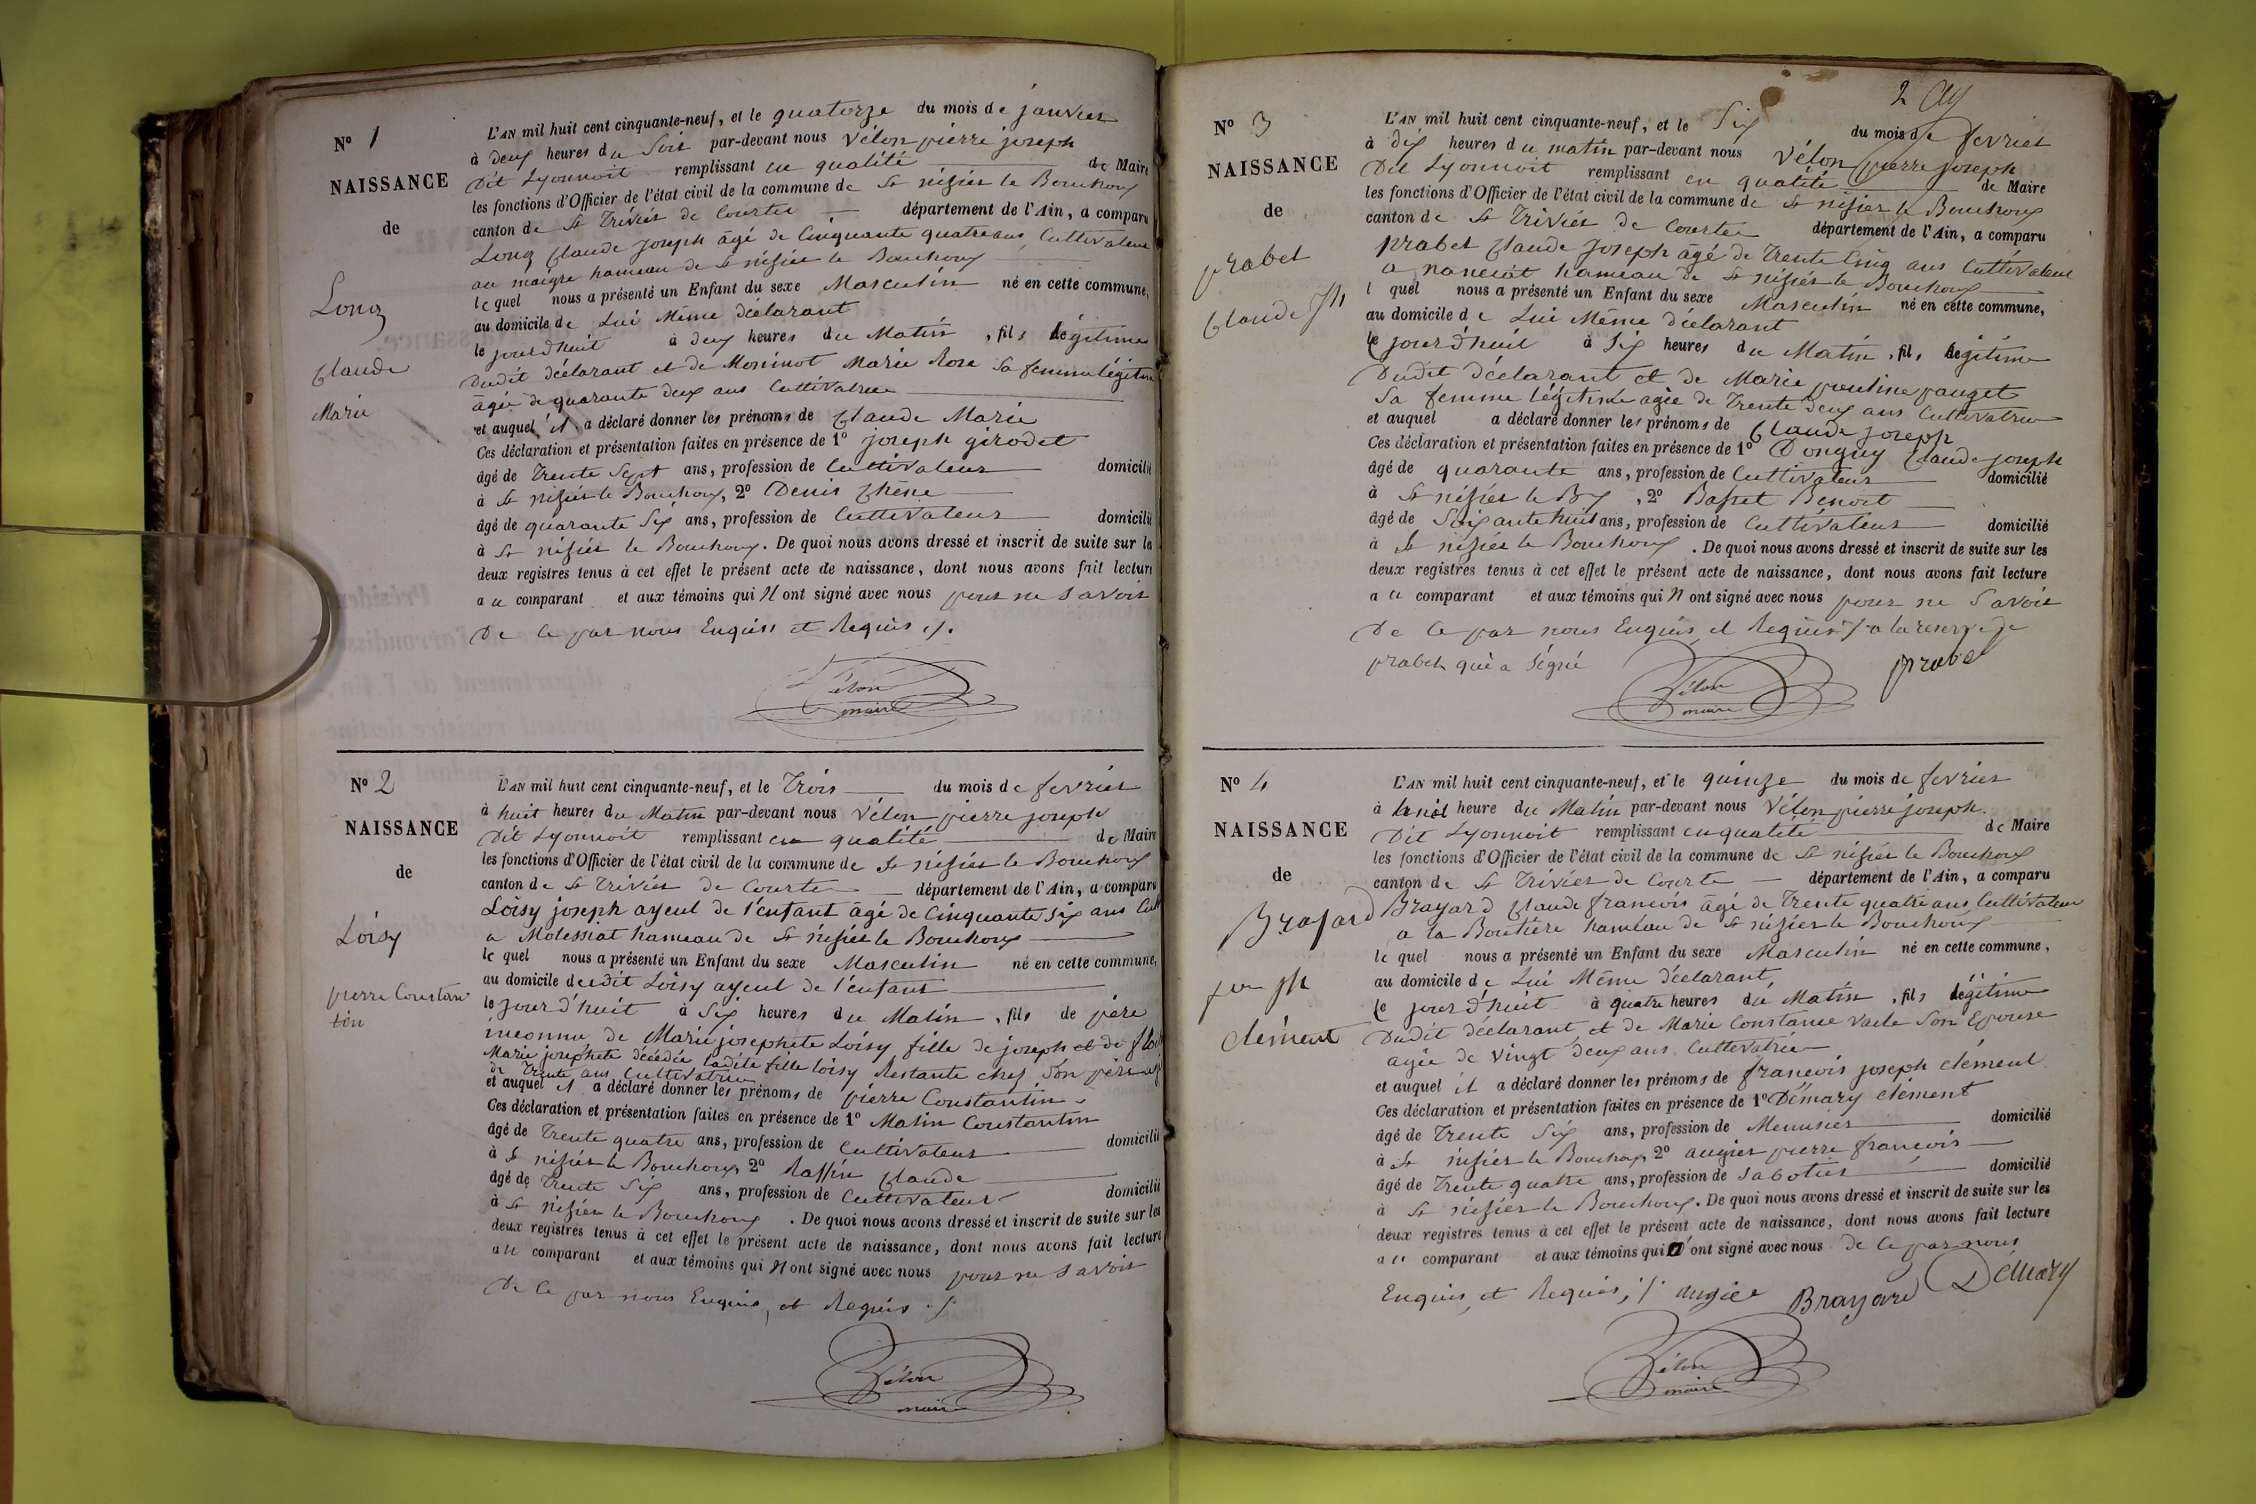 N° 1
NAISSANCE
de
Long
Claude
Marie
L'AN mil huit cent cinquante-neuf, et le quatorze du mois de janvier
à deux heures du Soir par-devant nous Vélon pierre joseph
Dit Lyonnoit remplissant en qualité de Maire
les fonctions d'Officier de l'état civil de la commune de St nisier le Bouchoux
canton de St Trivier de Courtes département de l'Ain, a comparu
Long Claude joseph âgé de Cinquante quatre ans Cultivateur
au maigre hameau de St nisier le Bouchoux
lequel nous a présenté un Enfant du sexe Masculin né en cette commune,
au domicile de Lui Même déclarant
le jourd'huit à deux heures du Matin, fils légitime
Dudit déclarant et de Moninot Marie Rose Sa femme légitime
âgée de quarante deux ans Cultivatrice
et auquel il a déclaré donner les prénoms de Claude Marie
Ces déclaration et présentation faites en présence de 1° joseph girodet
âgé de Trente Sept ans, profession de Cultivateur domicilié
à St nisier le Bouchoux, 2° Denis Chêne
âgé de quarante Six ans, profession de Cultivateur domicilié
à St nisier le Bouchoux. De quoi nous avons dressé et inscrit de suite sur les
deux registres tenus à cet effet le présent acte de naissance, dont nous avons fait lecture
au comparant et aux témoins qui N ont signé avec nous pour ne Savoir
De Ce par nous Enquis et Requis ./.
Vélon
maire
N° 2
NAISSANCE
de
Loisy
pierre Constan
tin
L'AN mil huit cent cinquante-neuf, et le Trois du mois de fevrier
à huit heures du Matin par-devant nous Vélon pierre joseph
Dit Lyonnoit remplissant en qualité de Maire
les fonctions d'Officier de l'état civil de la commune de St nisier le Bouchoux
canton de St Trivier de Courtes département de l'Ain, a comparu
Loisy joseph ayeul de l'enfant âgé de Cinquante Six ans Cult
a Molessiat hameau de St nisier le Bouchoux
lequel nous a présenté un Enfant du sexe Masculin né en cette commune,
au domicile dudit Loisy ayeul de l'enfant
le jourd'huit à Six heures du Matin, fils de père
inconnu de Marie josephete Loisy fille de joseph et de
Marie josephete décédée ladite fille loisy Restante chez Son père agé
de Trente ans Cultivatrice
et auquel il a déclaré donner les prénoms de pierre Constantin
Ces déclaration et présentation faites en présence de 1° Matin Constantin
âgé de Trente quatre ans, profession de Cultivateur domicilié
à St nisier le Bouchoux, 2° Raffin Claude
âgé de Trente Six ans, profession de Cultivateur domicilié
à St nisier le Bouchoux. De quoi nous avons dressé et inscrit de suite sur les
deux registres tenus à cet effet le présent acte de naissance, dont nous avons fait lecture
au comparant et aux témoins qui N ont signé avec nous pour ne Savoir
De Ce par nous Enquis, et Requis ./.
Vélon
maire
2
N° 3
NAISSANCE
de
prabel
Claude Jh
L'AN mil huit cent cinquante-neuf, et le Six du mois de fevrier
à dix heures du matin par-devant nous Vélon pierre joseph
Dit Lyonnoit remplissant en qualité de Maire
les fonctions d'Officier de l'état civil de la commune de St nisier le Bouchoux
canton de St Trivier de Courtes département de l'Ain, a comparu
prabel Claude joseph âgé de Trente Cinq ans Cultivateur
a nanciat hameau de St nisier le Bouchoux
l quel nous a présenté un Enfant du sexe Masculin né en cette commune,
au domicile de Lui Même déclarant
le jourd'huit à Six heures du Matin, fils légitime
Dudit déclarant et de Marie pauline pauget
Sa femme légitime agée de Trente deux ans Cultivatrice
et auquel a déclaré donner les prénoms de Claude joseph
Ces déclaration et présentation faites en présence de 1° Donguy Claude joseph
âgé de quarante ans, profession de Cultivateur domicilié
à St nisier le Bx, 2° Bassset Benoit
âgé de Soixante huit ans, profession de Cultivateur domicilié
à St nisier le Bouchoux. De quoi nous avons dressé et inscrit de suite sur les
deux registres tenus à cet effet le présent acte de naissance, dont nous avons fait lecture
au comparant et aux témoins qui N ont signé avec nous pour ne Savoir
De Ce par nous Enquis et Requis ./. a la reserve de
prabel qui a Signé
prabel
Vélon
maire
N° 4
NAISSANCE
de
Brayard
fr Jh
Clément
L'AN mil huit cent cinquante-neuf, et le quinze du mois de fevrier
à heure du Matin par-devant nous Vélon pierre joseph
Dit Lyonnoit remplissant en qualité de Maire
les fonctions d'Officier de l'état civil de la commune de St nisier le Bouchoux
canton de St Trivier de Courte département de l'Ain, a comparu
Brayard Claude francois âgé de Trente quatre ans Cultivateur
a la Boutière hameau de St nisier le Bouchoux
lequel nous a présenté un Enfant du sexe Masculin né en cette commune,
au domicile de Lui Même déclarant,
le jourd'huit à quatre heures du Matin, fils légitime
Dudit déclarant, et de Marie Constance Vacle Son Epouse
agée de vingt deux ans Cultivatrice
et auquel il a déclaré donner les prénoms de francois joseph clément
Ces déclaration et présentation faites en présence de 1° Démary clément
âgé de Trente Six ans, profession de Menusier domicilié
à St nisier le Bouchoux, 2° augier pierre francois
âgé de Trente quatre ans, profession de Sabotier domicilié
à St nisier le Bouchoux. De quoi nous avons dressé et inscrit de suite sur les
deux registres tenus à cet effet le présent acte de naissance, dont nous avons fait lecture
au comparant et aux témoins qui ont signé avec nous de Ce par nous
Enquis, et Requis, ./. augier Brayard Démary
Vélon
maire